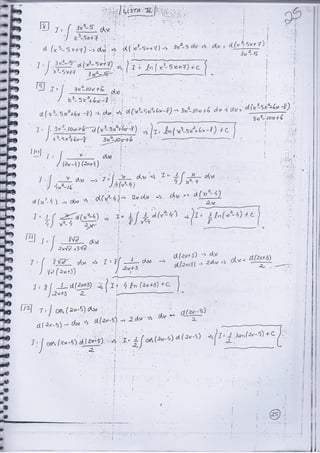 LISTA III
25
8 I = ∫ 3x²-5 / x³-5x+7 dx
d(x³-5x+7) → dx ⇒ d(x³-5x+7) → 3x²-5 dx ⇒ dx = d(x³-5x+7) / 3x²-5
I = ∫ 3x²-5 / x³-5x+7 d(x³-5x+7) / 3x²-5 ⇒ { I = ln(x³-5x+7)+C }
9 I = ∫ 3x²-10x+6 / x³-5x²+6x-8 dx
d(x³-5x²+6x-8) → dx ⇒ d(x³-5x²+6x-8) → 3x²-10x+6 dx ⇒ dx = d(x³-5x²+6x-8) / 3x²-10x+6
I = ∫ 3x²-10x+6 / x³-5x²+6x-8 d(x³-5x²+6x-8) / 3x²-10x+6 ⇒ { I = ln(x³-5x²+6x-8)+C }
10 I = ∫ x / (2x-4)(2x+4) dx
I = ∫ x / 4x²-16 dx ⇒ I = ∫ x / 4(x²-4) dx ⇒ I = 1/4 ∫ x / x²-4 dx
d(x²-4) → dx ⇒ d(x²-4) → 2x dx ⇒ dx = d(x²-4) / 2x
I = 1/4 ∫ x / x²-4 d(x²-4) / 2x ⇒ I = 1/8 ∫ 1 / x²-4 d(x²-4) ⇒ { I = 1/8 ln(x²-4)+C }
11 I = ∫ 8√2 / 2x√2+3√2 dx
I = ∫ 8√2 / √2(2x+3) dx ⇒ I = 8 ∫ 1 / 2x+3 dx → d(2x+3) → dx
d(2x+3) → 2dx ⇒ dx = d(2x+3) / 2
I = 8 ∫ 1 / 2x+3 d(2x+3) / 2 ⇒ { I = 4 ln(2x+3)+C }
12 I = ∫ cos(2x-5) dx
d(2x-5) → dx ⇒ d(2x-5) → 2dx ⇒ dx = d(2x-5) / 2
I = ∫ cos(2x-5) d(2x-5) / 2 ⇒ I = 1/2 ∫ cos(2x-5) d(2x-5) ⇒ { I = 1/2 sen(2x-5)+C }
25